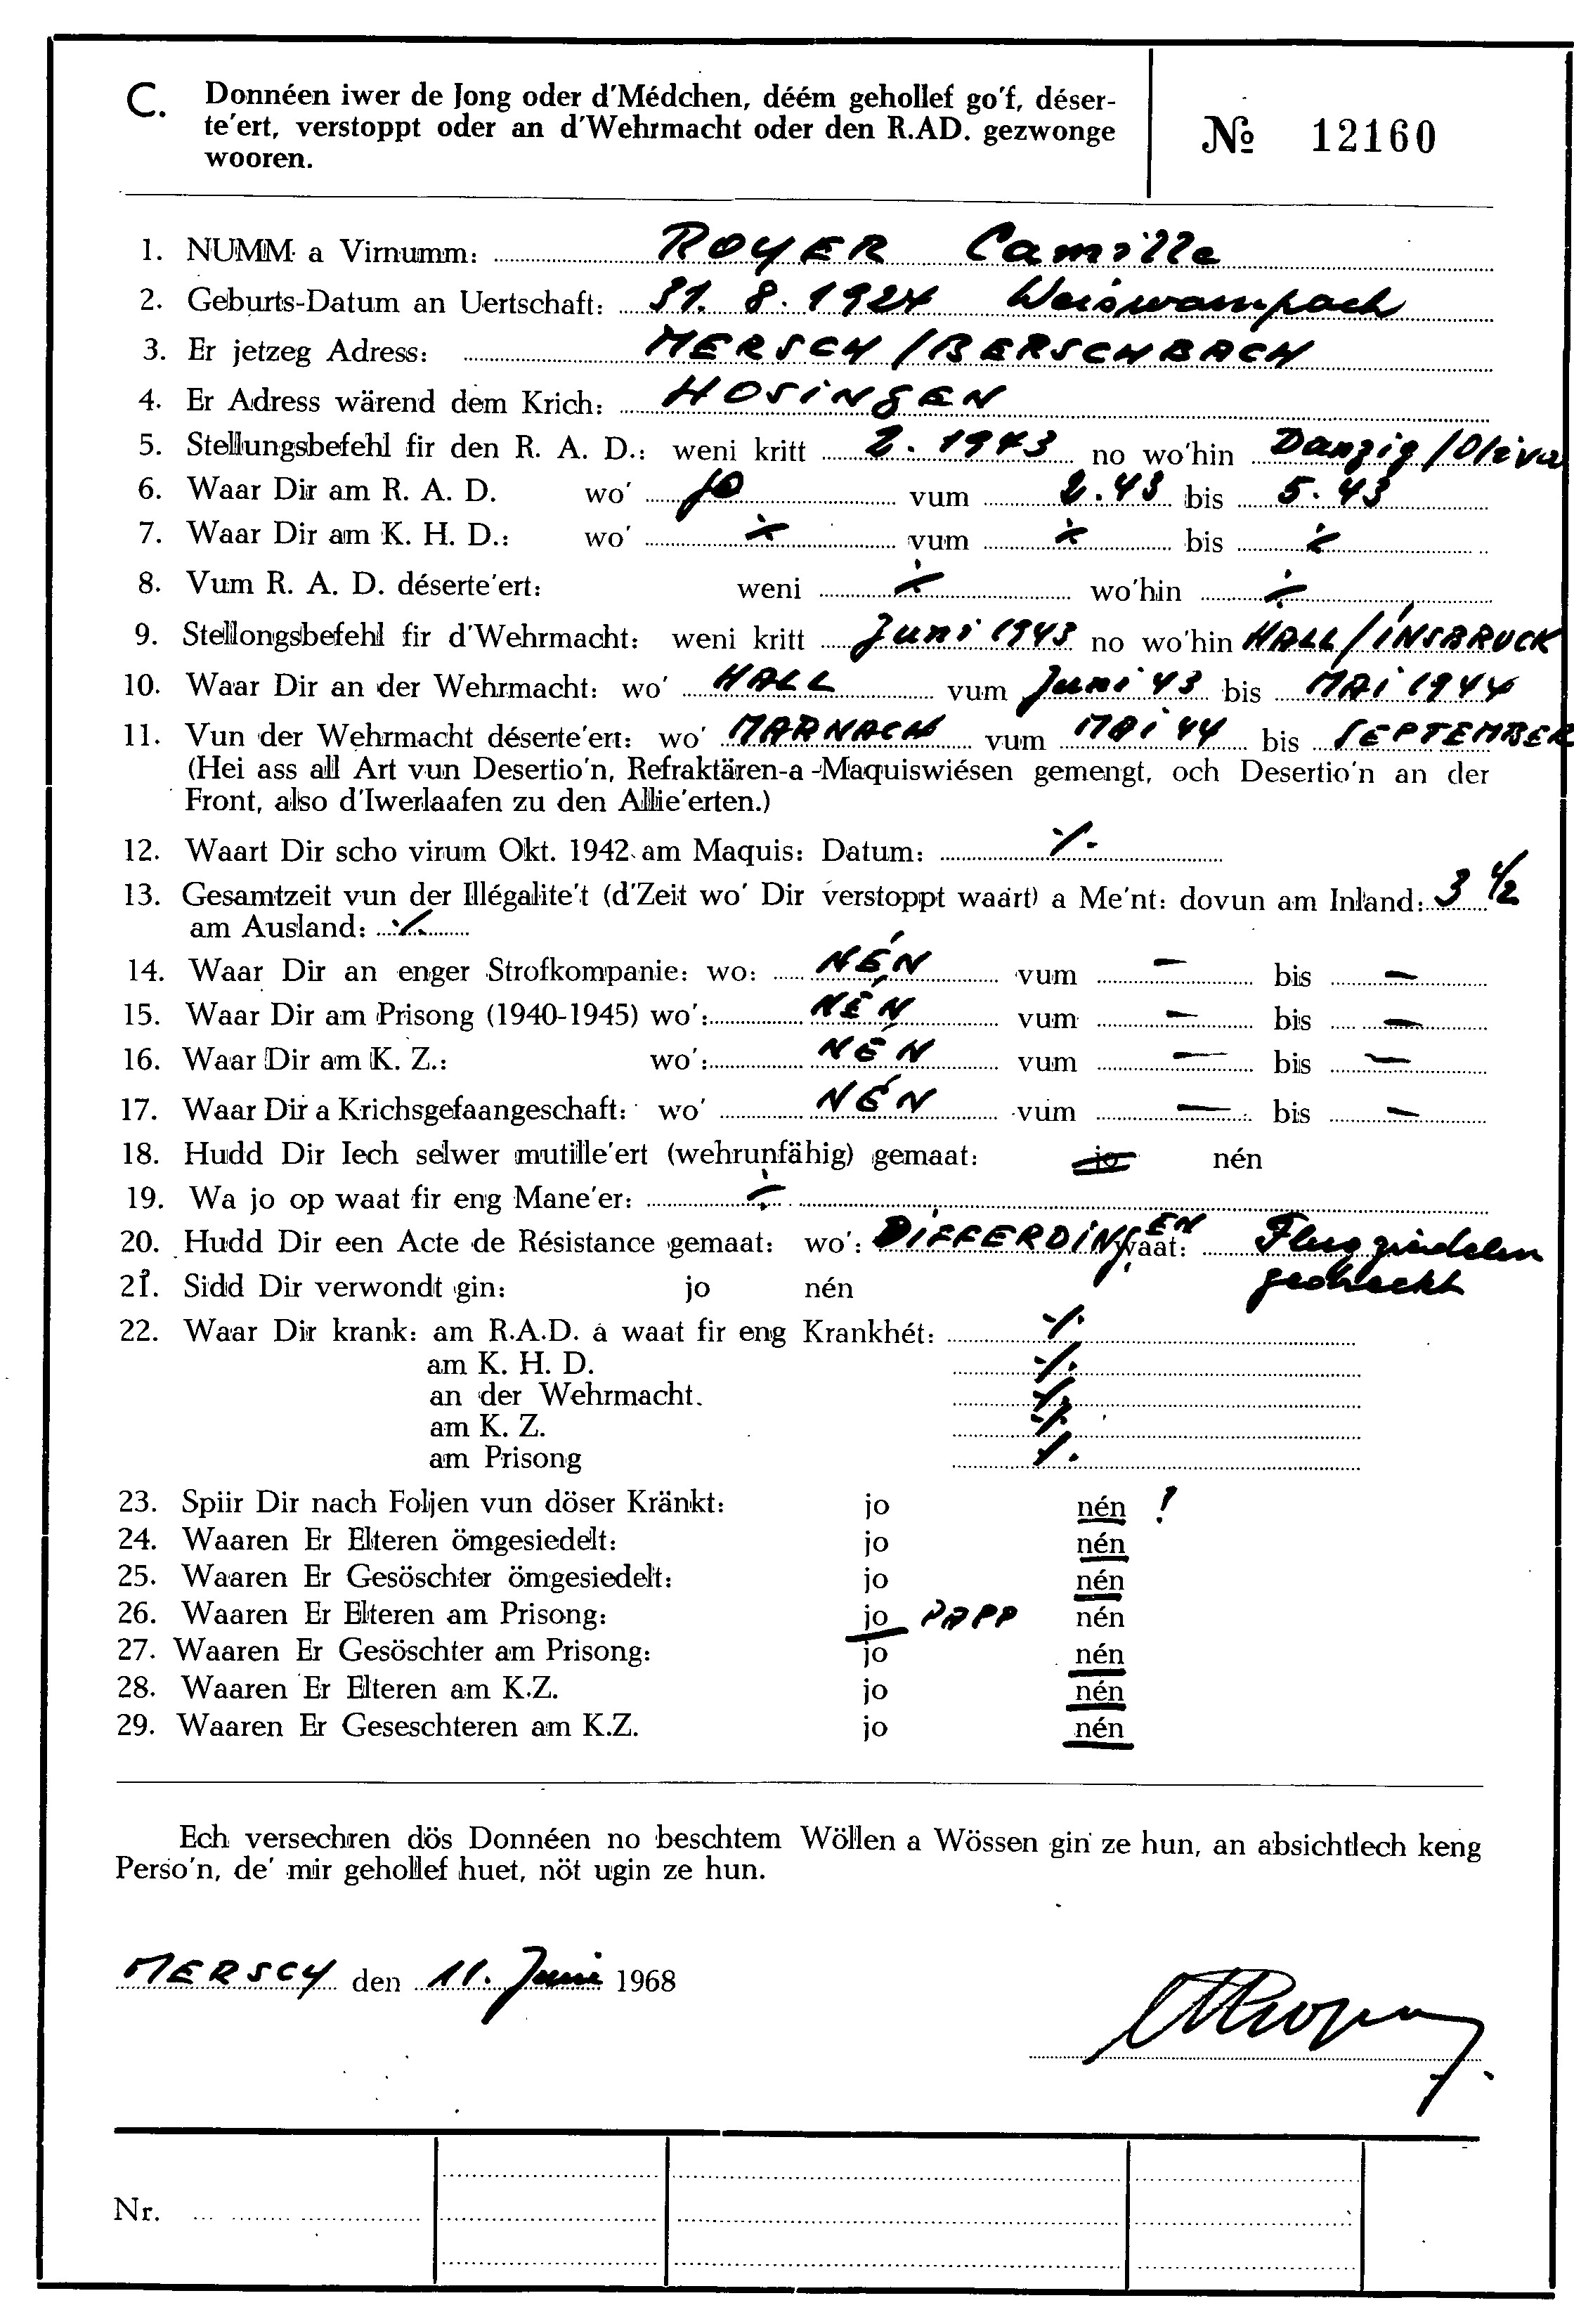 C. Donnéen iwer de Jong oder d'Médchen, déém gehollef go'f, déser-
te'ert, verstoppt oder an d'Wehrmacht oder den R.AD. gezwonge
wooren.
№ 12160
1. NUMM a Virnumm: ROYER Camille
2. Geburts-Datum an Uertschaft: 31. 8. 1924 Weiswampach
3. Er jetzeg Adress: MERSCH / BERSCHBACH
4. Er Adress wärend dem Krich: HOSiNgEN
5. Stellungsbefehl fir den R. A. D.: weni kritt 2. 1943 no wo'hin Danzig / Oliva
6. Waar Dir am R. A. D. wo' jo vum 2.43 bis 5.43
7. Waar Dir am K. H. D.: wo' ⁒ vum ⁒ bis ⁒
8. Vum R. A. D. déserte'ert: weni ⁒ wo'hin ⁒
9. Stellongsbefehl fir d'Wehrmacht: weni kritt Juni 1943 no wo'hin HALL / iNSBRUCK
10. Waar Dir an der Wehrmacht: wo' HALL vum Juni 43 bis MAi 1944
11. Vun der Wehrmacht déserte'ert: wo' MARNACH vum MAi 44 bis SEPTEMBER
(Hei ass all Art vun Desertio'n, Refraktären-a-Maquiswiésen gemengt, och Desertio'n an der
Front, also d'Iwerlaafen zu den Allie'erten.)
12. Waart Dir scho virum Okt. 1942 am Maquis: Datum: ⁒
13. Gesamtzeit vun der Illégalite't (d'Zeit wo' Dir verstoppt waart) a Me'nt: dovun am Inland: 3 1/2
am Ausland: ⁒
14. Waar Dir an enger Strofkompanie: wo: NÉN vum — bis —
15. Waar Dir am Prisong (1940-1945) wo': NÉN vum — bis —
16. Waar Dir am K. Z.: wo': NÉN vum — bis —
17. Waar Dir a Krichsgefaangeschaft: wo' NÉN vum — bis —
18. Hudd Dir Iech selwer mutille'ert (wehrunfähig) gemaat: jo nén
19. Wa jo op waat fir eng Mane'er: ⁒
20. Hudd Dir een Acte de Résistance gemaat: wo': DiFFERDiNgEN waat: Flugziedelen
gedreckt
21. Sidd Dir verwondt gin: jo nén
22. Waar Dir krank: am R.A.D. a waat fir eng Krankhét: ⁒
am K. H. D. ⁒
an der Wehrmacht. ⁒
am K. Z. ⁒
am Prisong ⁒
23. Spiir Dir nach Foljen vun döser Kränkt: jo nén !
24. Waaren Er Elteren ömgesiedelt: jo nén
25. Waaren Er Gesöschter ömgesiedelt: jo nén
26. Waaren Er Elteren am Prisong: jo PAPP nén
27. Waaren Er Gesöschter am Prisong: jo nén
28. Waaren Er Elteren am K.Z. jo nén
29. Waaren Er Geseschteren am K.Z. jo nén
Ech versechren dös Donnéen no beschtem Wöllen a Wössen gin ze hun, an absichtlech keng
Perso'n, de' mir gehollef huet, nöt ugin ze hun.
MERSCH den 11. Juni 1968
Nr.